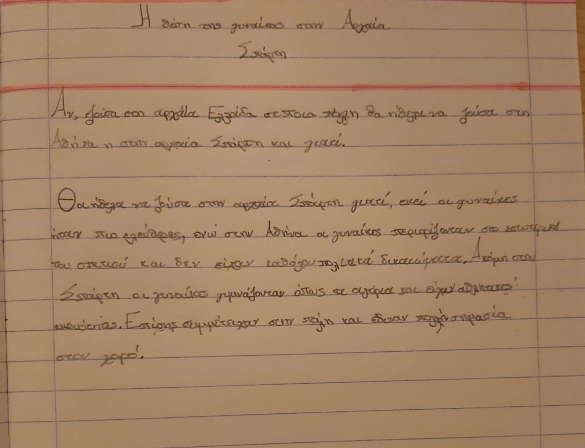 Η θέση της γυναίκας στην Αρχαία
Σπάρτη
Αν, ζούσα στη αρχαία Ελλάδα σε ποια πόλη θα ήθελα να ζούσα στη
Αθήνα η στην αρχαία Σπάρτη και γιατί.
Θα ήθελα να ζούσα στην αρχαία Σπάρτη γιατί, εκεί οι γυναίκες
ήταν πιο ελεύθερες, ενώ στην Αθήνα οι γυναίκες περιορίζονταν στο εσωτερικό
του σπιτιού και δεν είχαν καθόλου πολιτικά δικαιώματα. Ακόμη στην
Σπάρτη οι γυναίκες γυμνάζονταν όπως τα αγόρια και είχαν αθλητικές
Επίσης συμμετείχαν στην πάλη και έδιναν πολλή σημασία
στον χορό.